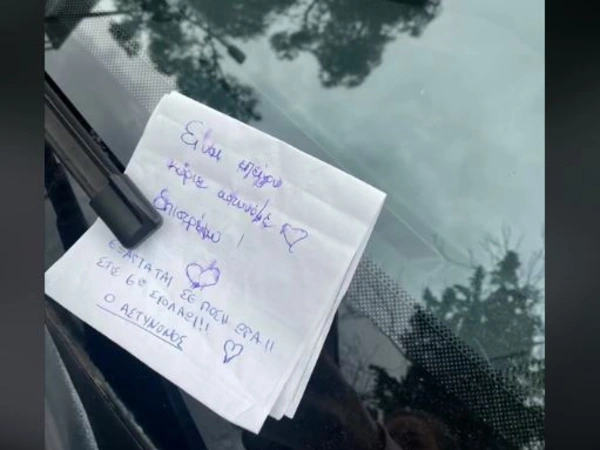 Είναι επείγον
κύριε αστυνόμε
Επιστρέφω !
ΕΞΑΡΤΑΤΑΙ ΣΕ ΠΟΣΗ ΩΡΑ!!
ΣΤΙΣ 6 ΣΧΟΛΑΩ!!!
Ο ΑΣΤΥΝΟΜΟΣ